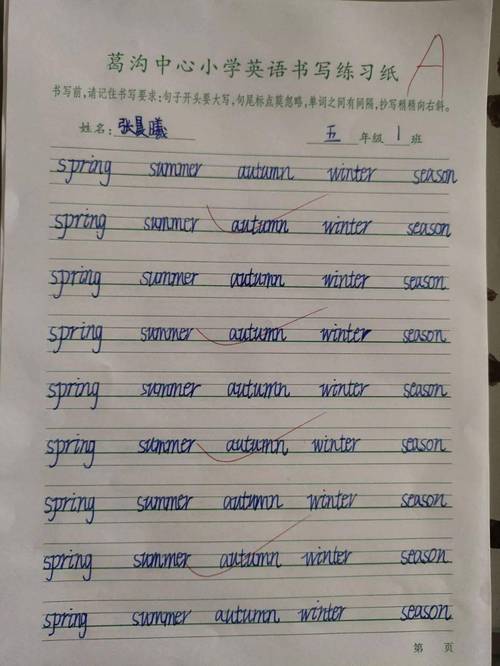 葛沟中心小学英语书写练习纸
A
书写前,请记住书写要求:句子开头要大写,句尾标点莫忽略,单词之间有间隔,抄写稍稍向右斜。
姓名:张晨曦 五年级1班
spring summer autumn winter season
spring summer autumn winter season
spring summer autumn winter season
spring summer autumn winter season
spring summer autumn winter season
spring summer autumn winter season
spring summer autumn winter season
spring summer autumn winter season
spring summer autumn winter season
第 页